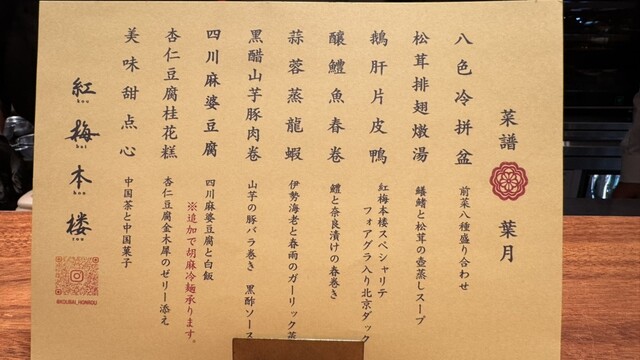 菜譜 葉月
八色冷拼盆
前菜八種盛り合わせ
松茸排翅燉湯
鱶鰭と松茸の壺蒸しスープ
鵝肝片皮鴨
紅梅本楼スペシャリテ
フォアグラ入り北京ダック
釀鱧魚春卷
鱧と奈良漬けの春巻き
蒜蓉蒸龍蝦
伊勢海老と春雨のガーリック蒸
黒醋山芋豚肉卷
山芋の豚バラ巻き 黒酢ソース
四川麻婆豆腐
四川麻婆豆腐と白飯
※追加で胡麻冷麺承ります。
杏仁豆腐桂花糕
杏仁豆腐金木犀のゼリー添え
美味甜点心
中国茶と中国菓子
紅梅本楼
kou
bai
hon
rou
@KOUBAI_HONROU